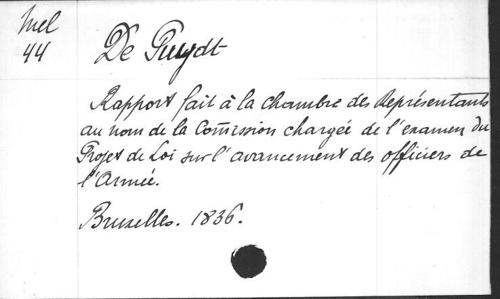 Mel
44
De Puydt
Rapport fait à la chambre des Représentants
au nom de la Com̅ission chargée de l'examen du
Projet de Loi sur l'avancement des officiers de
l'Armée.
Bruxelles. 1836.